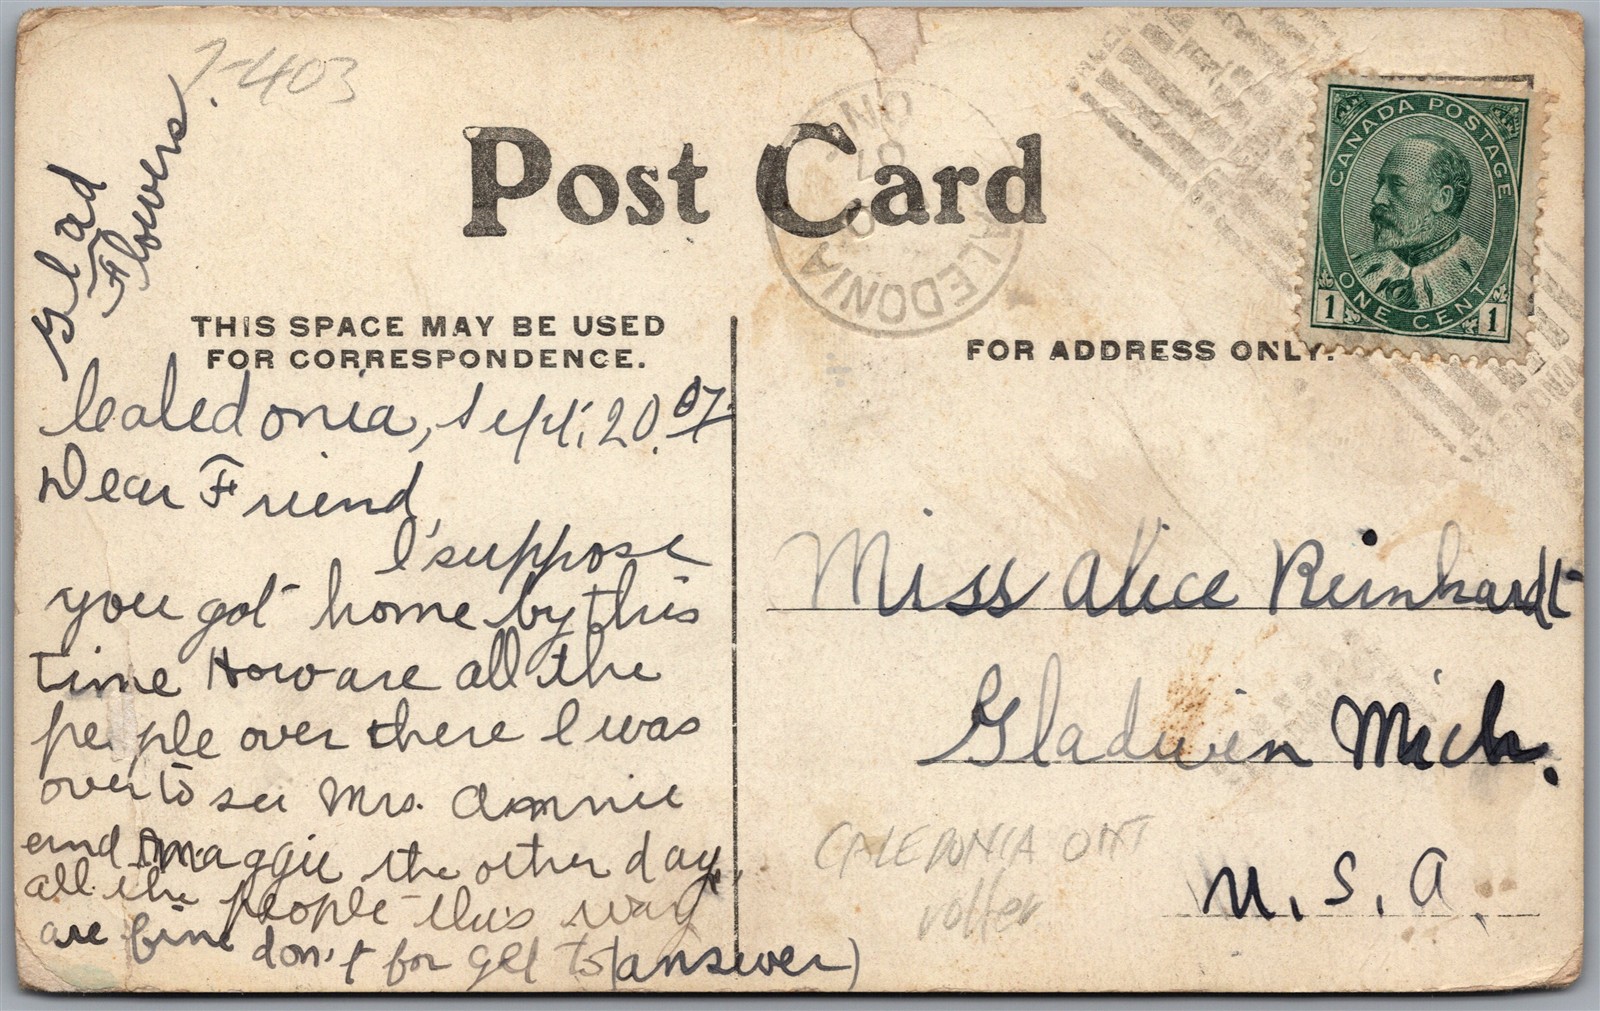 7-403
Glad
Flowers
Post Card
CALEDONIA
ONT
07
CANADA POSTAGE
ONE CENT
1 1
THIS SPACE MAY BE USED
FOR CORRESPONDENCE.
FOR ADDRESS ONLY.
Caledonia, Sept. 20. 07.
Dear Friend,
I suppose
you got home by this
time How are all the
people over there I was
over to see Mrs. Annie
and Maggie the other day.
all the people this way
are fine don't for get to (answer)
Miss Alice Reinhardt
Gladwin Mich.
U.S.A.
CALEDONIA ONT
roller